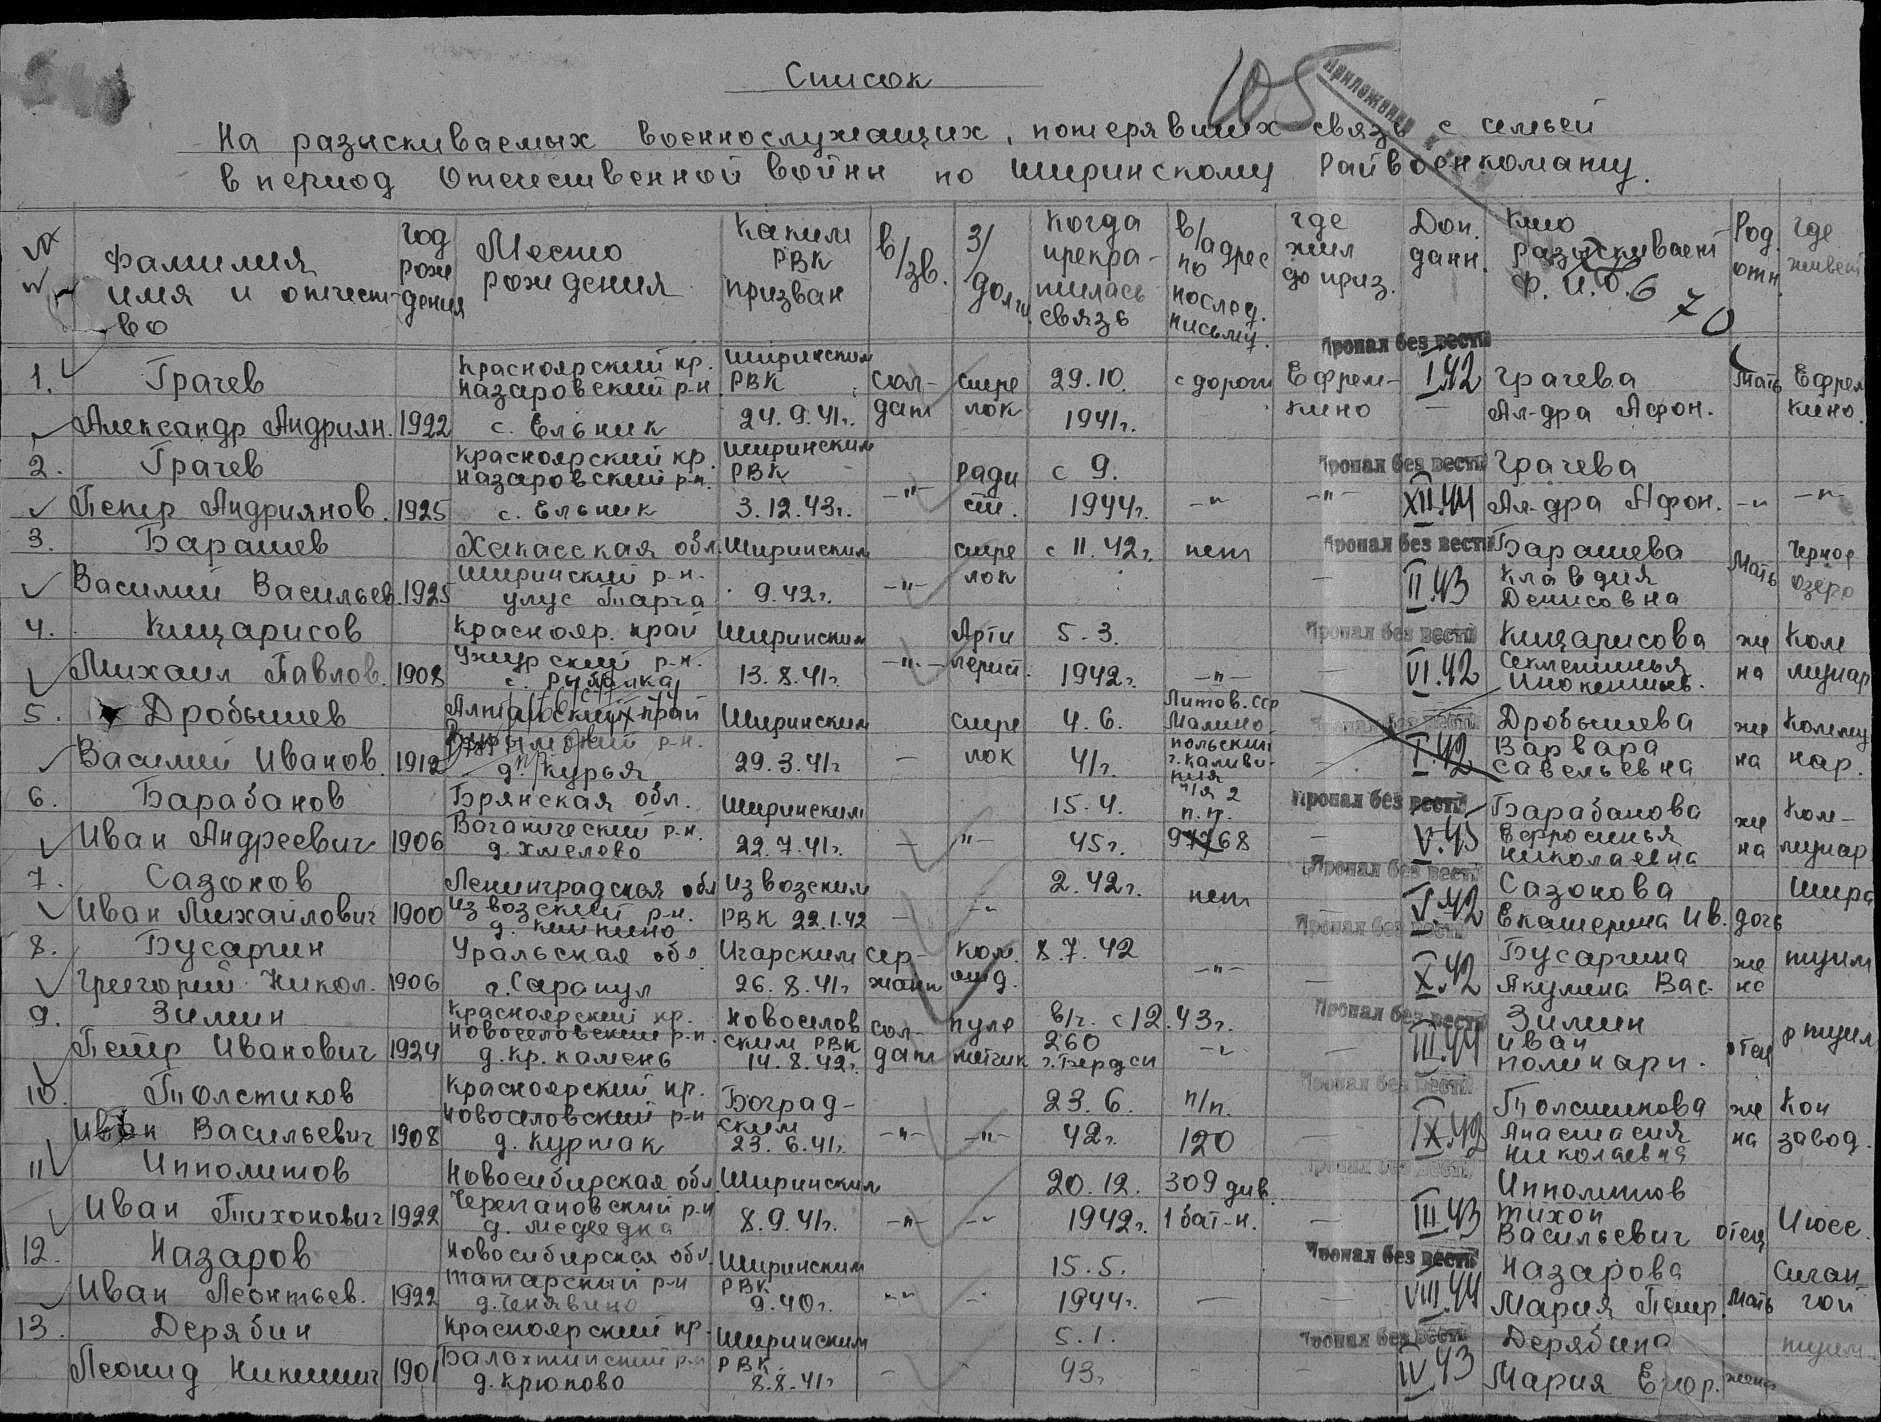 Список
105
На разыскиваемых военнослужащих, потерявших связь с семьей
в период Отечественной войны по Ширинскому Райвоенкомату.
№ № Фамилия имя и отчество | год рождения | Место рождения | Каким РВК призван | в/зв. | З/долж. | Когда прекратилась связь | в/адрес по послед. письму | где жил до приз. | Доп. данн. | Кто разыскивает Ф.И.О. | Род. отн. | где живет
70
1. Грачев Александр Андриян. | 1922 | Красноярский кр. Назаровский р-н с. Ельник | Ширинским РВК 24.9.41г. | сол-дат | стре лок | 29.10. 1941г. | с дороги | Ефрем-кино | Пропал без вести I.42 | Грачева Ал-дра Афон. | Мать | Ефрем кино.
2. Грачев Петр Андриянов. | 1925 | Красноярский кр. Назаровский р-н. с. Ельник | Ширинским РВК 3.12.43г. | -"- | Ради ст. | с 9. 1944г. | -"- | -"- | Пропал без вести XII.44 | Грачева Ал-дра Афон. | -"- | -"-
3. Барашев Василий Васильев. | 1925 | Хакасская обл. Ширинский р-н. улус Тарча | Ширинским 9.42г. | -"- | стре лок | с 11.42г. | нет | – | Пропал без вести II.43 | Барашева Клавдия Денисовна | Мать | Черное озеро
4. Кицарисов Михаил Павлов. | 1908 | Краснояр. край Ужурский р-н. с. Рыбалка | Ширинским 13.8.41г. | -"- | Арти лерист. | 5.3. 1942г. | -"- | – | Пропал без вести VI.42 | Кицарисова | же на | Ком мунар
5. Дробышев Василий Иванов. | 1912 | край р-н. д. Курья | Ширинским 29.3.41г | – | стре лок | 4.6. 41г. | Литов.ССР п/я 2 | – | Пропал без вести I.42 | Дробышева Варвара Савельевна | же на | Комму нар.
6. Барабанов Иван Андреевич | 1906 | Брянская обл. р-н. д. Хмелево | Ширинским 22.7.41г. | – | -"- | 15.4. 45г. | п.п. | – | Пропал без вести V.45 | Барабанова Ефросинья Николаевна | же на | Ком-мунар
7. Сазонов Иван Михайлович | 1900 | Ленинградская обл Извозский р-н. | Извозским РВК 22.1.42 | – | -"- | 2.42г. | нет | – | Пропал без вести V.42 | Сазонова Екатерина Ив. | дочь | Шира
8. Бусаргин Григорий Никол. | 1906 | Уральская обл. г. Сарапул | Игарским 26.8.41г | сер-жант | Ком. отд. | 8.7.42 | -"- | – | Пропал без вести X.42 | Бусаргина Акулина Вас. | же на | туим
9. Зимин Петр Иванович | 1924 | Красноярский кр. Новоселовский р-н. д. Кр. камень | Новоселов ским РВК 14.8.42г. | сол-дат | пуле метчик | в/ч. с 12.43г. 260 г. Бердск | -"- | – | Пропал без вести III.44 | Зимин Иван | отец | р туим
10. Толстиков Иван Васильевич | 1908 | Красноярский кр. Новоселовский р-н д. Куртак | Боград-ским 23.6.41г. | -"- | -"- | 23.6. 42г. | п/п. 120 | – | Пропал без вести IX.42 | Толстикова Анастасия Николаевна | же на | Кон завод.
11 Ипполитов Иван Тихонович | 1922 | Новосибирская обл. Черепановский р-н д. Медведка | Ширинским 8.9.41г. | -"- | -"- | 20.12. 1942г. | 309 див. 1 бат-н. | – | Пропал без вести III.43 | Ипполитов Тихон Васильевич | отец | Июсс.
12. Назаров Иван Леонтьев. | 1922 | Новосибирская обл Татарский р-н | Ширинским РВК 9.40г. | -"- | -"- | 15.5. 1944г. | – | – | Пропал без вести VIII.44 | Назарова Мария Петр. | Мать |
13. Дерябин Леонид Никитич | 1901 | Красноярский кр. Балахтинский р-н д. Крюково | Ширинским РВК 8.8.41г | – | – | 5.1. 43г. | – | – | Пропал без вести IV.43 | Дерябина Мария Егор. | жена | туим